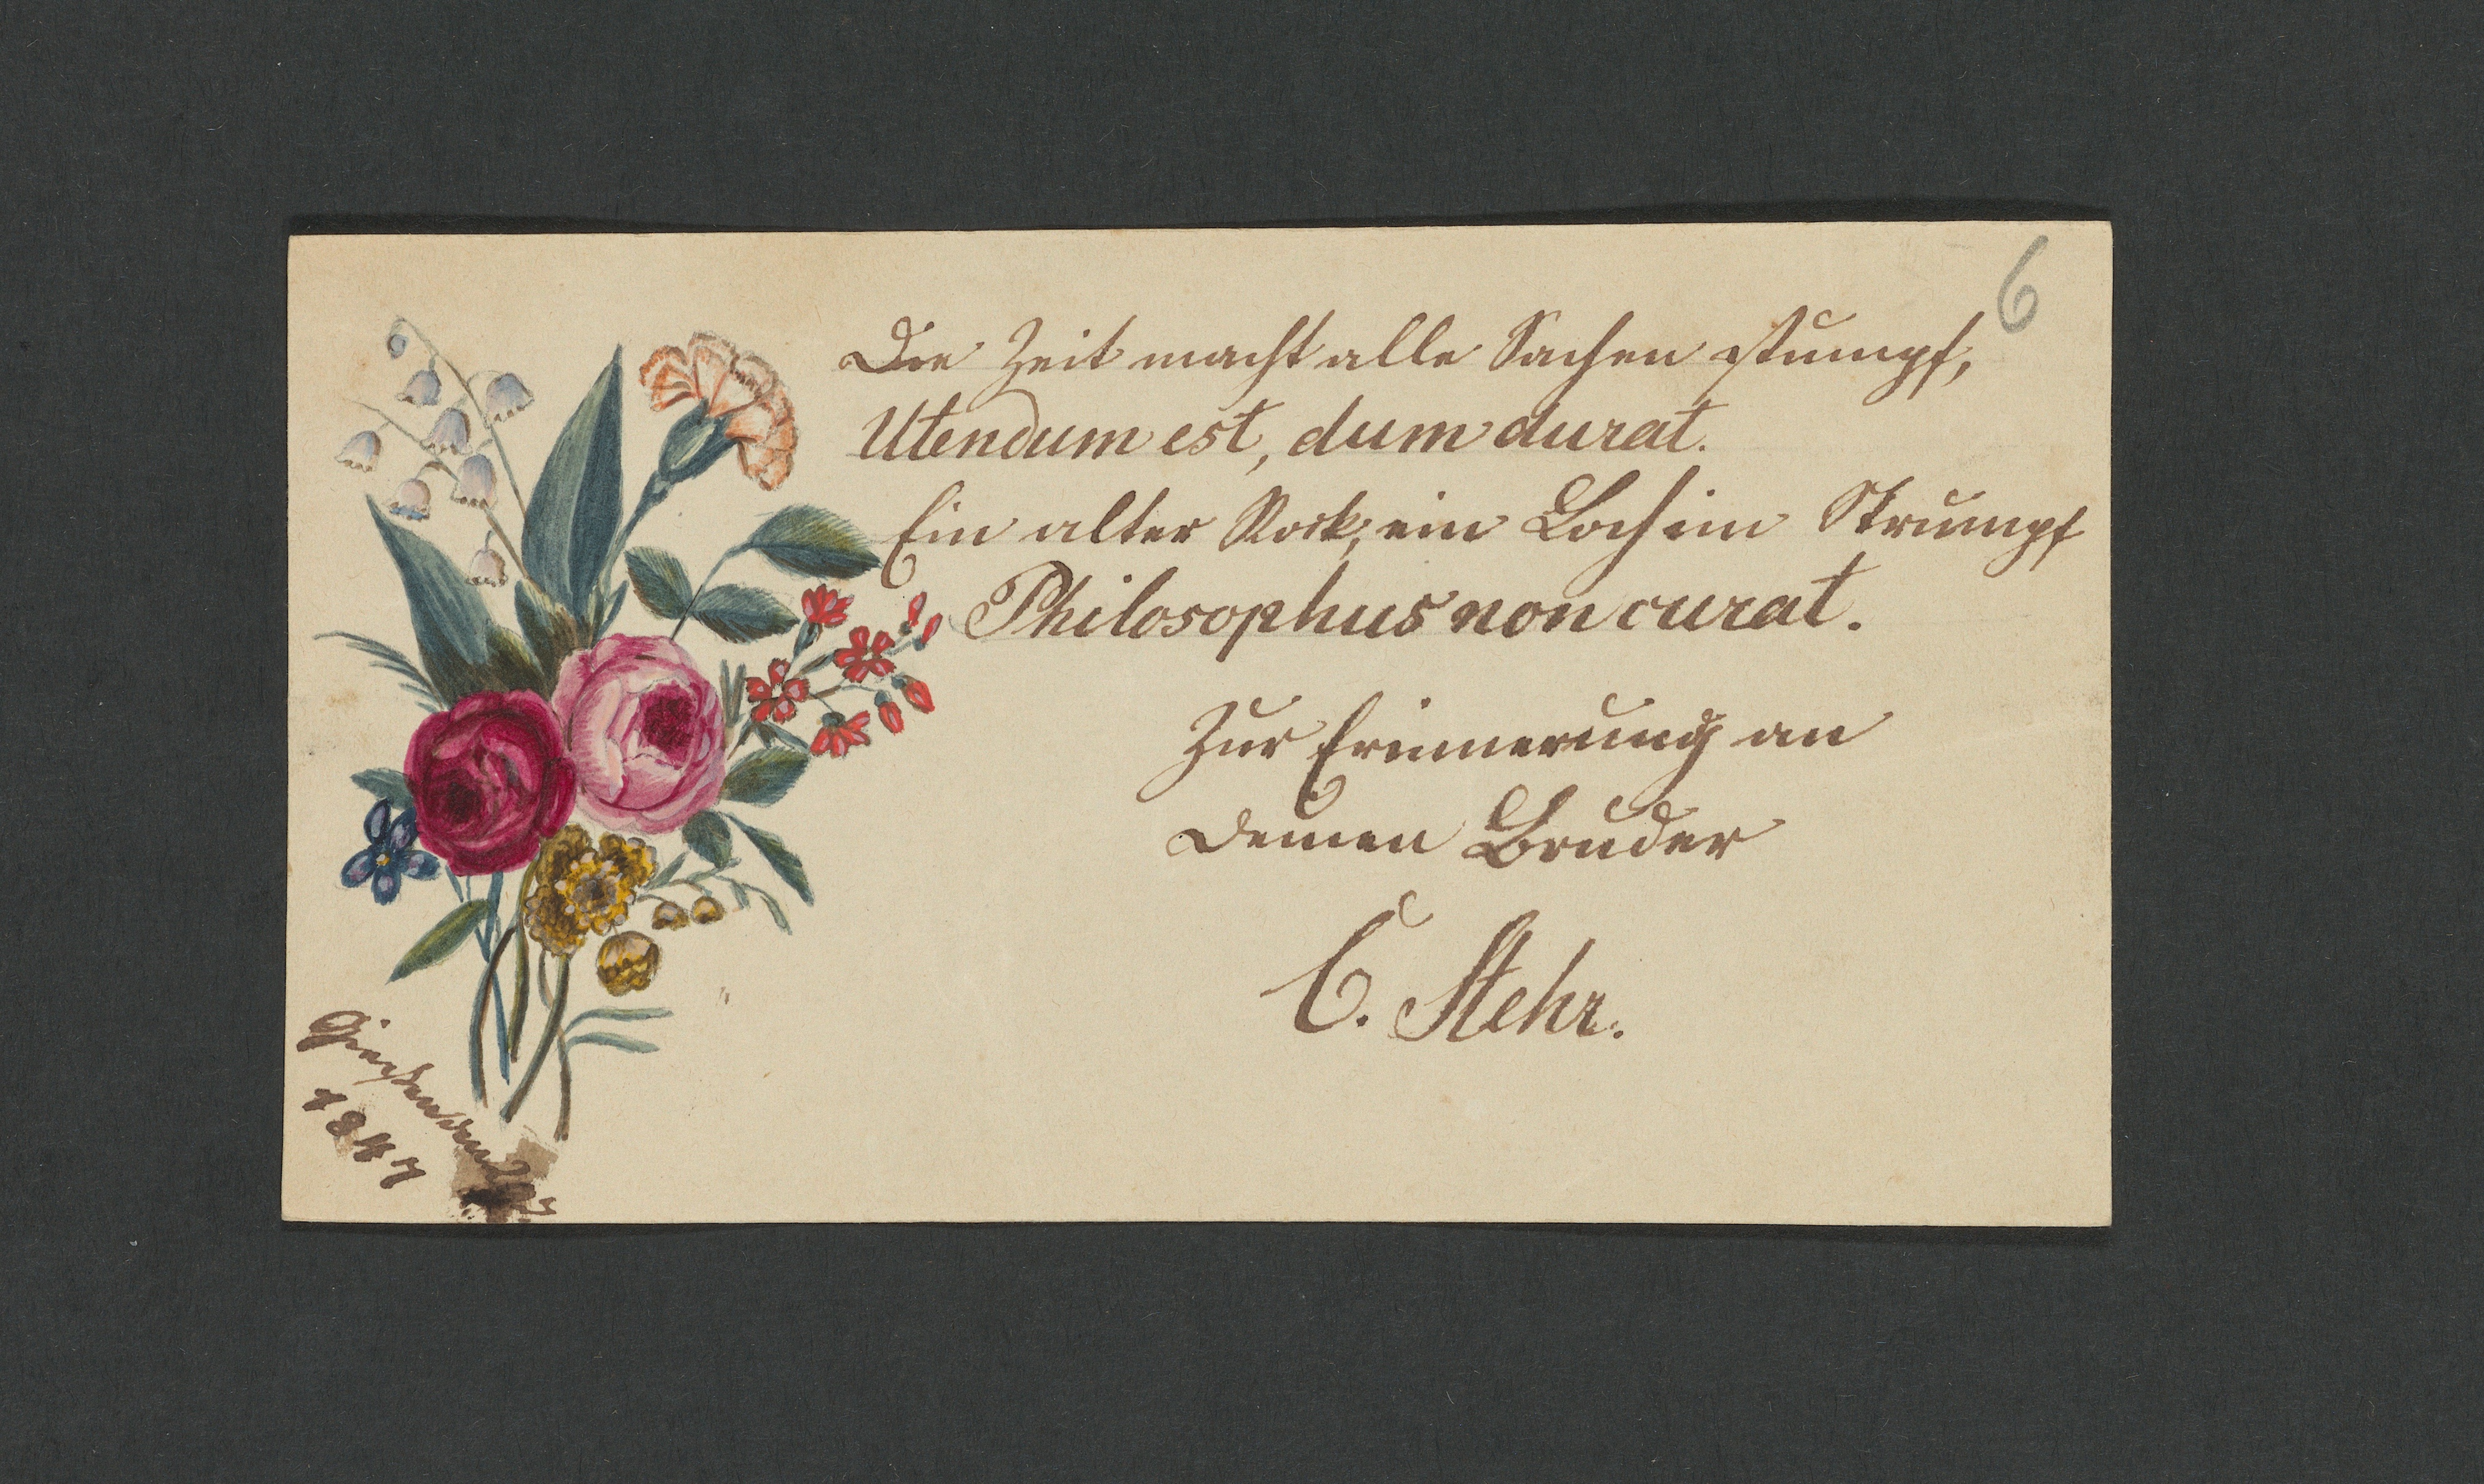 6
Die Zeit macht alle Sachen stumpf,
Utendum est, dum durat.
Ein alter Rock, ein Loch im Strumpf
Philosophus non curat.
Zur Erinnerung an
Deinen Bruder
C. Stehr.
1847